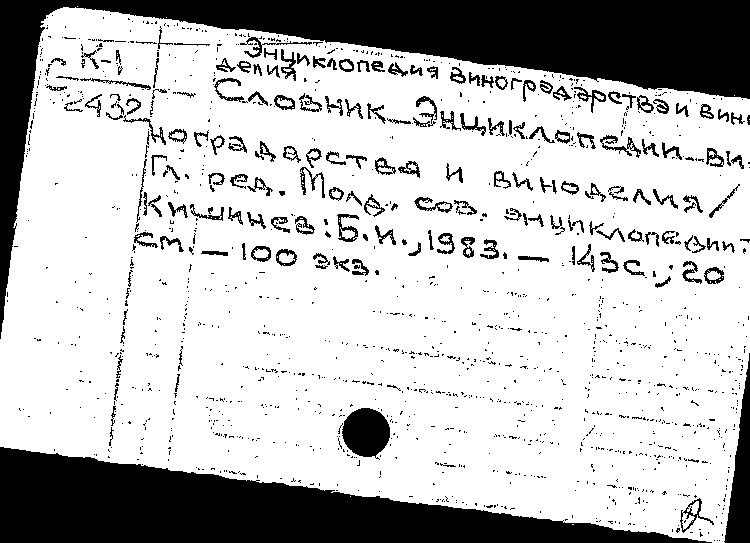 Энциклопедия виноградарства и вино
делия.
С К-1
2432
Словник Энциклопедии ви-
ноградарства и виноделия/
Гл. ред. Молд. сов. энциклопедии.-
Кишинев: Б.И., 1983. — 143с.; 20
см. — 100 экз.